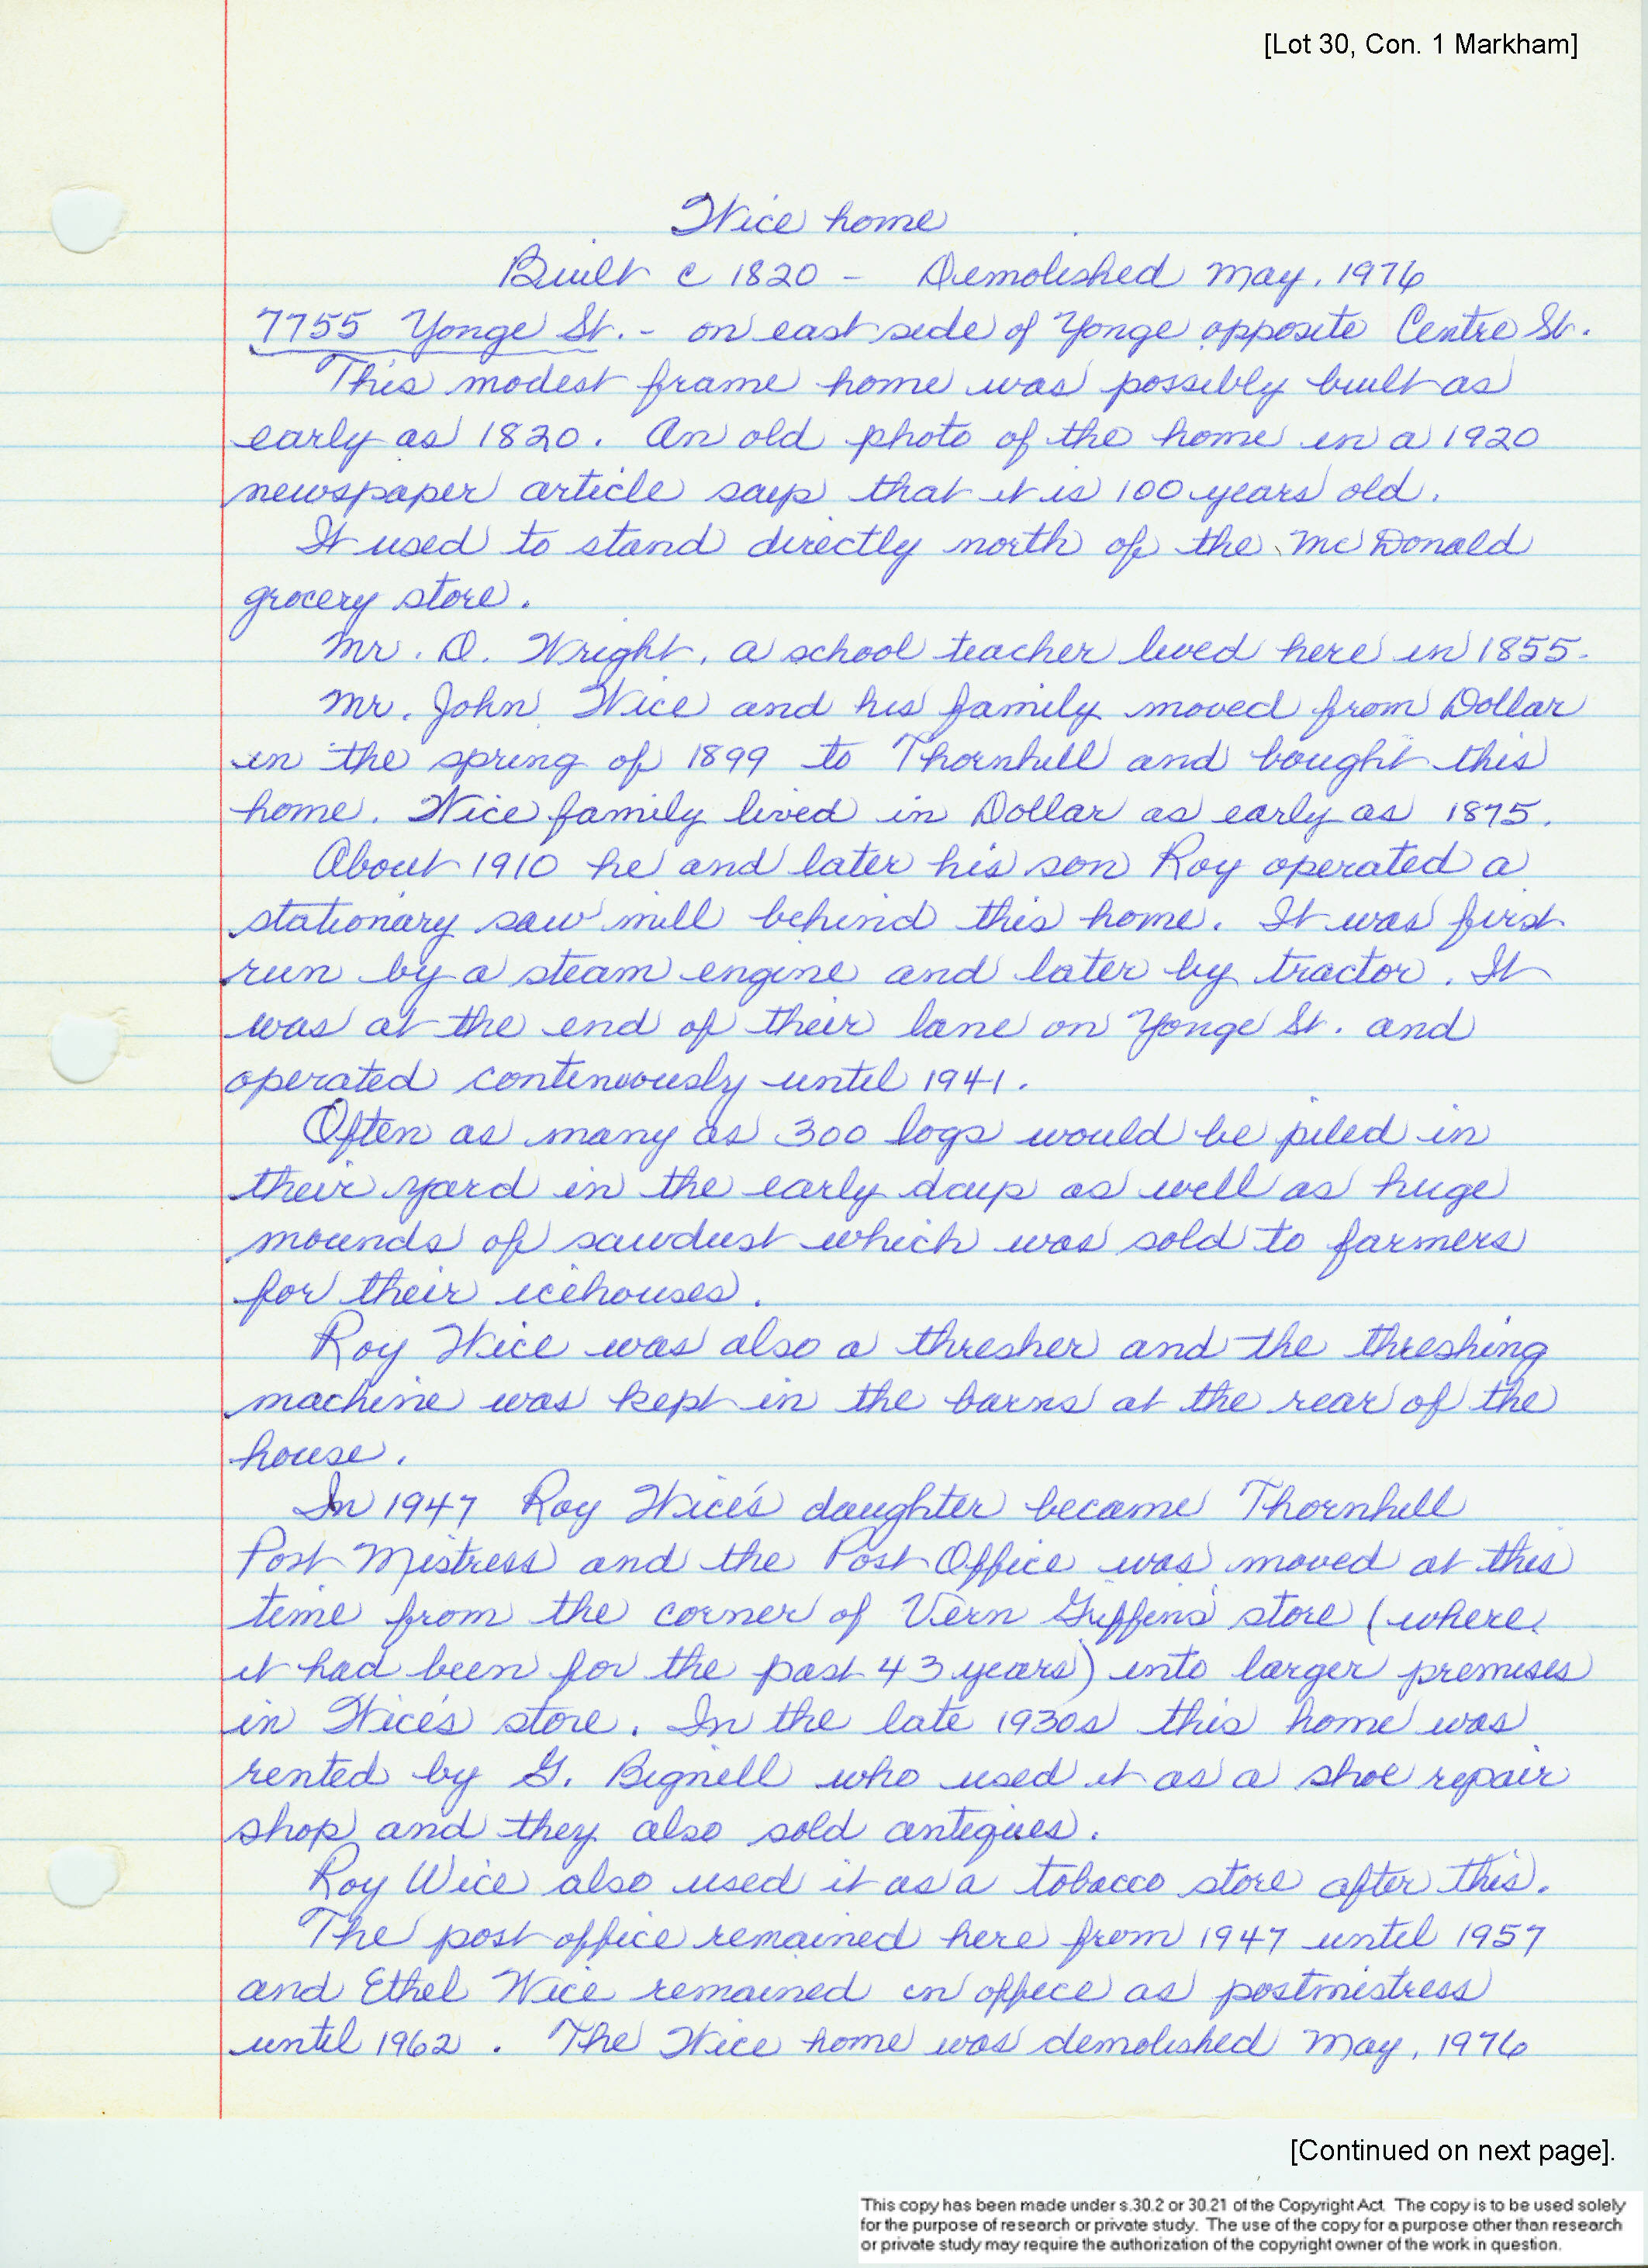 [Lot 30, Con. 1 Markham]
Wice home
Built c 1820 - Demolished May, 1976
7755 Yonge St. - on east side of Yonge opposite Centre St.
This modest frame home was possibly built as
early as 1820. An old photo of the home in a 1920
newspaper article says that it is 100 years old.
It used to stand directly north of the McDonald
grocery store.
Mr. D. Wright, a school teacher lived here in 1855.
Mr. John Wice and his family moved from Dollar
in the spring of 1899 to Thornhill and bought this
home. Wice family lived in Dollar as early as 1875.
About 1910 he and later his son Roy operated a
stationary saw mill behind this home. It was first
run by a steam engine and later by tractor. It
was at the end of their lane on Yonge St. and
operated continuously until 1941.
Often as many as 300 logs would be piled in
their yard in the early days as well as huge
mounds of sawdust which was sold to farmers
for their icehouses.
Roy Wice was also a thresher and the threshing
machine was kept in the barns at the rear of the
house.
In 1947 Roy Wice's daughter became Thornhill
Post Mistress and the Post Office was moved at this
time from the corner of Vern Griffin's store (where
it had been for the past 43 years) into larger premises
in Wice's store. In the late 1930s this home was
rented by G. Bignell who used it as a shoe repair
shop and they also sold antiques.
Roy Wice also used it as a tobacco store after this.
The post office remained here from 1947 until 1957
and Ethel Wice remained in office as postmistress
until 1962. The Wice home was demolished May, 1976
[Continued on next page].
This copy has been made under s.30.2 or 30.21 of the Copyright Act. The copy is to be used solely
for the purpose of research or private study. The use of the copy for a purpose other than research
or private study may require the authorization of the copyright owner of the work in question.